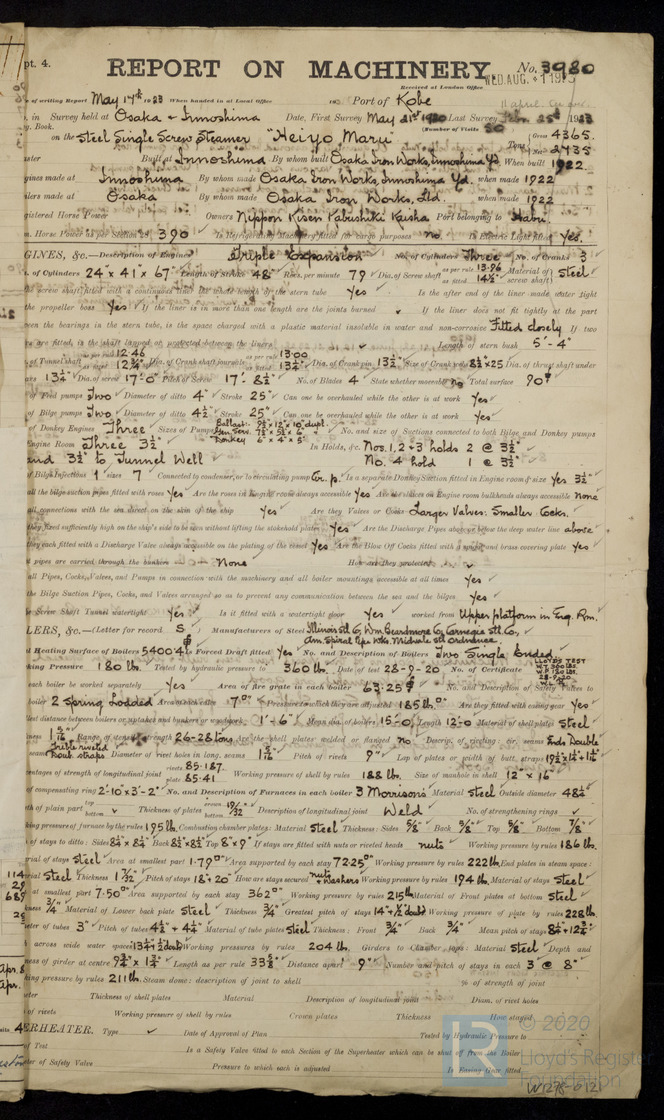 pt. 4.
REPORT ON MACHINERY. No. 3980
Received at London Office WED. AUG.
of writing Report May 17th 1923 When handed in at Local Office Port of Kobe
in Survey held at Osaka & Innoshima Date, First Survey May 21st 1920 Last Survey Feb. 25th 1923
Book. (Number of Visits 50
on the Steel Single Screw Steamer "Heiyo Maru Tons Gross 4365. Net 2435
Built at Innoshima By whom built Osaka Iron Works, Innoshima Yd. When built 1922.
gines made at Innoshima By whom made Osaka Iron Works, Innoshima Yd. when made 1922
ilers made at Osaka By whom made Osaka Iron Works, Ltd. when made 1922
gistered Horse Power Owners Nippon Kisen Kabushiki Kaisha Port belonging to Habu.
m. Horse Power as per Section 28 390 Is Refrigerating Machinery fitted for cargo purposes no. Is Electric Light fitted Yes.
GINES, &c.—Description of Engines Triple Expansion No. of Cylinders Three No. of Cranks 3
of Cylinders 24" x 41" x 67" Length of Stroke 48" Revs. per minute 79 Dia. of Screw shaft as per rule 13.96 as fitted 14½" Material of screw shaft steel
the screw shaft fitted with a continuous liner the whole length of the stern tube Yes Is the after end of the liner made water tight
the propeller boss Yes If the liner is in more than one length are the joints burned If the liner does not fit tightly at the part
een the bearings in the stern tube, is the space charged with a plastic material insoluble in water and non-corrosive Fitted closely If two
are fitted, is the shaft lapped or protected between the liners Length of stern bush 5'-4"
Dia. of Tunnel shaft as per rule 12.46 as fitted 12¾" Dia. of Crank shaft journals as per rule 13.00 as fitted 13¼" Dia. of Crank pin 13½" Size of Crank webs 8½" x 25 Dia. of thrust shaft under
13¼ Dia. of screw 17'-0" Pitch of Screw 17'-8½" No. of Blades 4 State whether moveable No Total surface 90
of Feed pumps Two Diameter of ditto 4" Stroke 25" Can one be overhauled while the other is at work Yes
of Bilge pumps Two Diameter of ditto 4½" Stroke 25" Can one be overhauled while the other is at work Yes
of Donkey Engines Three Sizes of Pumps No. and size of Suctions connected to both Bilge and Donkey pumps
Engine Room Three 3½" In Holds, &c. Nos. 1, 2 & 3 holds 2 @ 3½"
and 3½" to Tunnel Well No. 4 hold 1 @ 3½"
of Bilge Injections 1 sizes 7 Connected to condenser, or to circulating pump Cir. p. Is a separate Donkey Suction fitted in Engine room & size Yes 3½"
all the bilge suction pipes fitted with roses Yes Are the roses in Engine room always accessible Yes Are the sluices on Engine room bulkheads always accessible none
all connections with the sea direct on the skin of the ship Yes Are they Valves or Cocks Larger Valves: Smaller Cocks.
they fixed sufficiently high on the ship's side to be seen without lifting the stokehold plates Yes Are the Discharge Pipes above or below the deep water line above
they each fitted with a Discharge Valve always accessible on the plating of the vessel Yes Are the Blow Off Cocks fitted with a spigot and brass covering plate Yes
t pipes are carried through the bunkers None How are they protected
all Pipes, Cocks, Valves, and Pumps in connection with the machinery and all boiler mountings accessible at all times Yes
the Bilge Suction Pipes, Cocks, and Valves arranged so as to prevent any communication between the sea and the bilges Yes
he Screw Shaft Tunnel watertight Yes Is it fitted with a watertight door Yes worked from Upper platform in Eng. Rm.
LERS, &c.—(Letter for record S.) Manufacturers of Steel Illinois Stl Co, Wm Beardmore Co, Carnegie Stl Co,
Am. Spiral Pipe Wks. Midvale Stl Ordnance.
l Heating Surface of Boilers 5400 Is Forced Draft fitted Yes No. and Description of Boilers Two Single Ended.
king Pressure 180 lbs. Tested by hydraulic pressure to 360 lb. Date of test 28-9-20 No. of Certificate
LLOYD'S TEST
W.P. 180 LBS.
28-9-20
each boiler be worked separately Yes Area of fire grate in each boiler 63.25 No. and Description of Safety Valves to
boiler 2 Spring Loaded Area of each valve 7.0" Pressure to which they are adjusted 185 lb. Are they fitted with easing gear Yes
llest distance between boilers or uptakes and bunkers or woodwork 1'-6" Mean dia. of boilers 15'-0 Length 12'-0 Material of shell plates Steel
ness Range of tensile strength 26-28 tons Are the shell plates welded or flanged no Descrip. of riveting: cir. seams Ends Double
seams Triple riveted Butt straps Diameter of rivet holes in long. seams Pitch of rivets 9" Lap of plates or width of butt straps
entages of strength of longitudinal joint rivets 85.187 plate 85.41 Working pressure of shell by rules 188 lb. Size of manhole in shell 12" x 16"
of compensating ring 2'-10" x 3'-2" No. and Description of Furnaces in each boiler 3 Morrisons Material steel Outside diameter 48¼"
th of plain part top bottom Thickness of plates crown bottom 19/32 Description of longitudinal joint Weld No. of strengthening rings
king pressure of furnace by the rules 195 lb. Combustion chamber plates: Material steel Thickness: Sides 5/8" Back 5/8" Top 5/8" Bottom 7/8"
of stays to ditto: Sides 8¾" x 8½" Back 8½" x 8½" Top 8" x 9" If stays are fitted with nuts or riveted heads nuts Working pressure by rules 186 lb.
rial of stays steel Area at smallest part 1.79 Area supported by each stay 72.25 Working pressure by rules 222 lb. End plates in steam space:
rial Steel Thickness 1 7/32 Pitch of stays 18" x 20" How are stays secured nuts & washers Working pressure by rules 194 lb. Material of stays Steel
at smallest part 7.50 Area supported by each stay 362 Working pressure by rules 215 lb Material of Front plates at bottom Steel
kness ¾" Material of Lower back plate Steel Thickness ¾" Greatest pitch of stays Working pressure of plate by rules 228 lb.
eter of tubes 3" Pitch of tubes 4½ x 4¼" Material of tube plates Steel Thickness: Front ¾" Back ¾" Mean pitch of stays
across wide water spaces Working pressures by rules 204 lb. Girders to Chamber tops: Material Steel Depth and
ness of girder at centre 9¾" x 1¾" Length as per rule 33⅝ Distance apart 9" Number and pitch of stays in each 3 @ 8"
king pressure by rules 211 lb. Steam dome: description of joint to shell % of strength of joint
eter Thickness of shell plates Material Description of longitudinal joint Diam. of rivet holes
of rivets Working pressure of shell by rules Crown plates Thickness How stayed
ERHEATER. Type Date of Approval of Plan Tested by Hydraulic Pressure to
of Test Is a Safety Valve fitted to each Section of the Superheater which can be shut off from the Boiler
ter of Safety Valve Pressure to which each is adjusted Is Easing Gear fitted
© 2020
Lloyd's Register
Foundation
W1278-0121